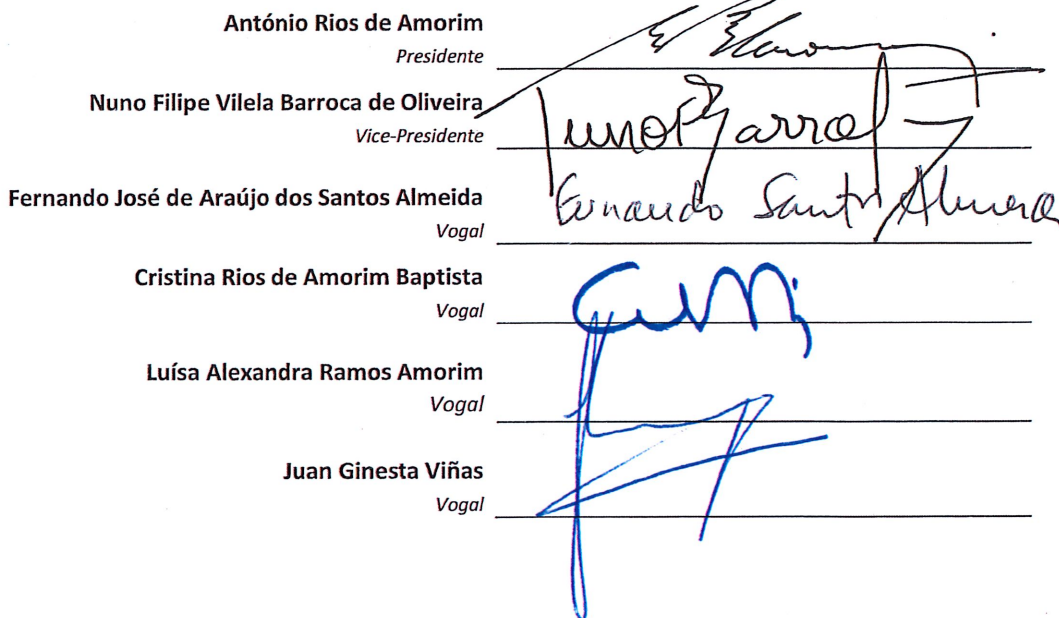 António Rios de Amorim
Presidente
Nuno Filipe Vilela Barroca de Oliveira
Vice-Presidente
Nuno F Barroca
Fernando José de Araújo dos Santos Almeida
Fernando Santos Almeida
Vogal
Cristina Rios de Amorim Baptista
Vogal
Luísa Alexandra Ramos Amorim
Vogal
Juan Ginesta Viñas
Vogal